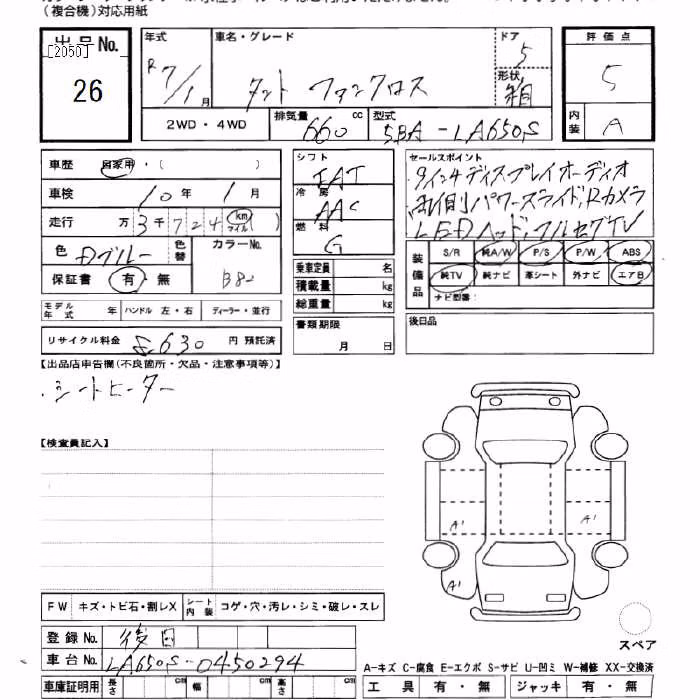 (複合機)対応用紙
出品No.
[2050]
26
年式
R7/1月
車名・グレード
タント ファンクロス
ドア
5
形状
箱
評価点
5
内装
A
2WD・4WD
排気量
660 cc
型式
5BA-LA650S
車歴 自家用・( )
車検 10年 1月
走行 万 3千724 km マイル ( )
色 Dブルー
色替
カラーNo.
B82
保証書 有・無
モデル年式 年 ハンドル 左・右 ディーラー・並行
リサイクル料金 8,630円 預託済
シフト
IAT
冷房
AAC
燃料
G
乗車定員 名
積載量 kg
総重量 kg
書類期限
月 日
セールスポイント
9インチディスプレイオーディオ
両側パワースライド,Rカメラ
LEDヘッド,フルセグTV
装備品
S/R 純A/W P/S P/W ABS
純TV 純ナビ 革シート 外ナビ エアB
ナビ型番:
後日品
【出品店申告欄(不良箇所・欠品・注意事項等)】
・シートヒーター
【検査員記入】
A1
A1
A1
FW キズ・トビ石・割レX シート内装 コゲ・穴・汚レ・シミ・破レ・スレ
登録No. 後日
車台No. LA650S-0450294
車庫証明用 長さ cm 幅 cm 高さ cm
スペア
A-キズ C-腐食 E-エクボ S-サビ U-凹ミ W-補修 XX-交換済
工具 有・無 ジャッキ 有・無